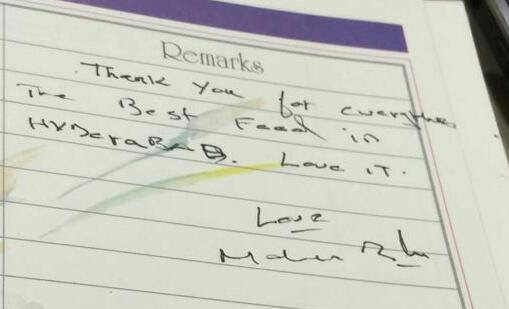 Remarks
Thank You for everything
The Best Food in
HYDeraBaD. Love it.
Love